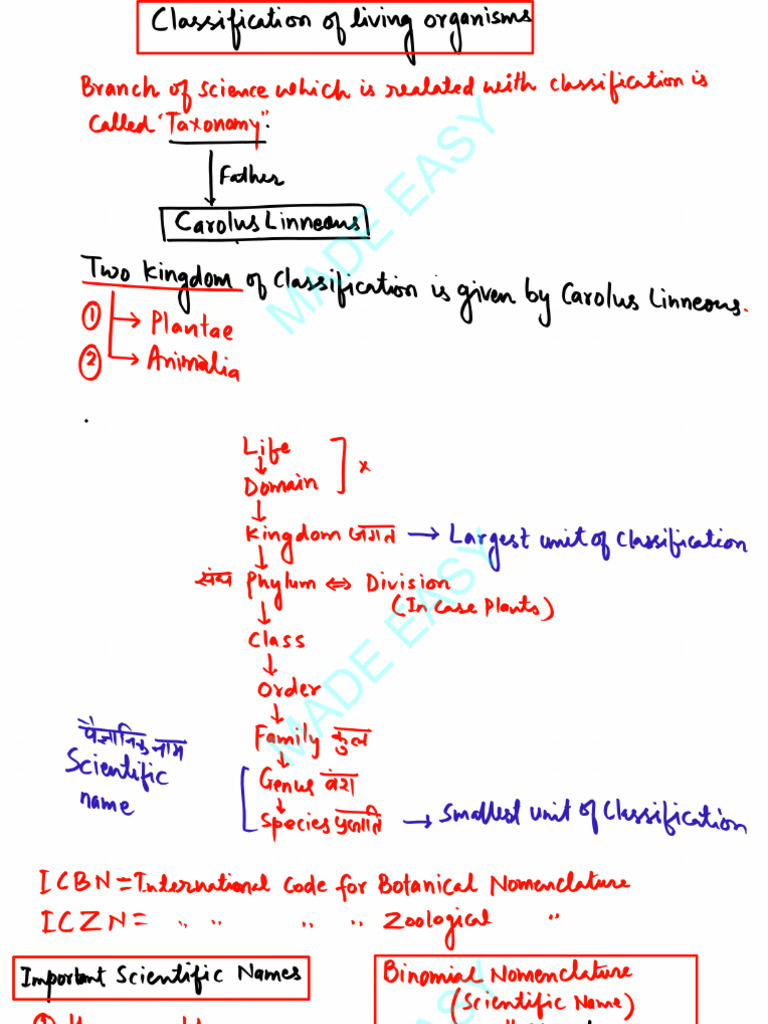 Classification of living organisms
Branch of science which is realated with classification is
called 'Taxonomy".
Father
Carolus Linneous
Two Kingdom of Classification is given by Carolus Linneous.
① → Plantae
② → Animalia
Life
Domain ] ×
Kingdom जगत → Largest unit of Classification
संघ Phylum ⇔ Division
(In Case Plants)
Class
Order
Family कुल
Genus वंश
Species → Smallest unit of Classification
नाम
Scientific
name
ICBN = International Code for Botanical Nomenclature
ICZN = " " " " Zoological "
Important Scientific Names
Binomial Nomenclature
(Scientific Name)
MADE EASY
MADE EASY